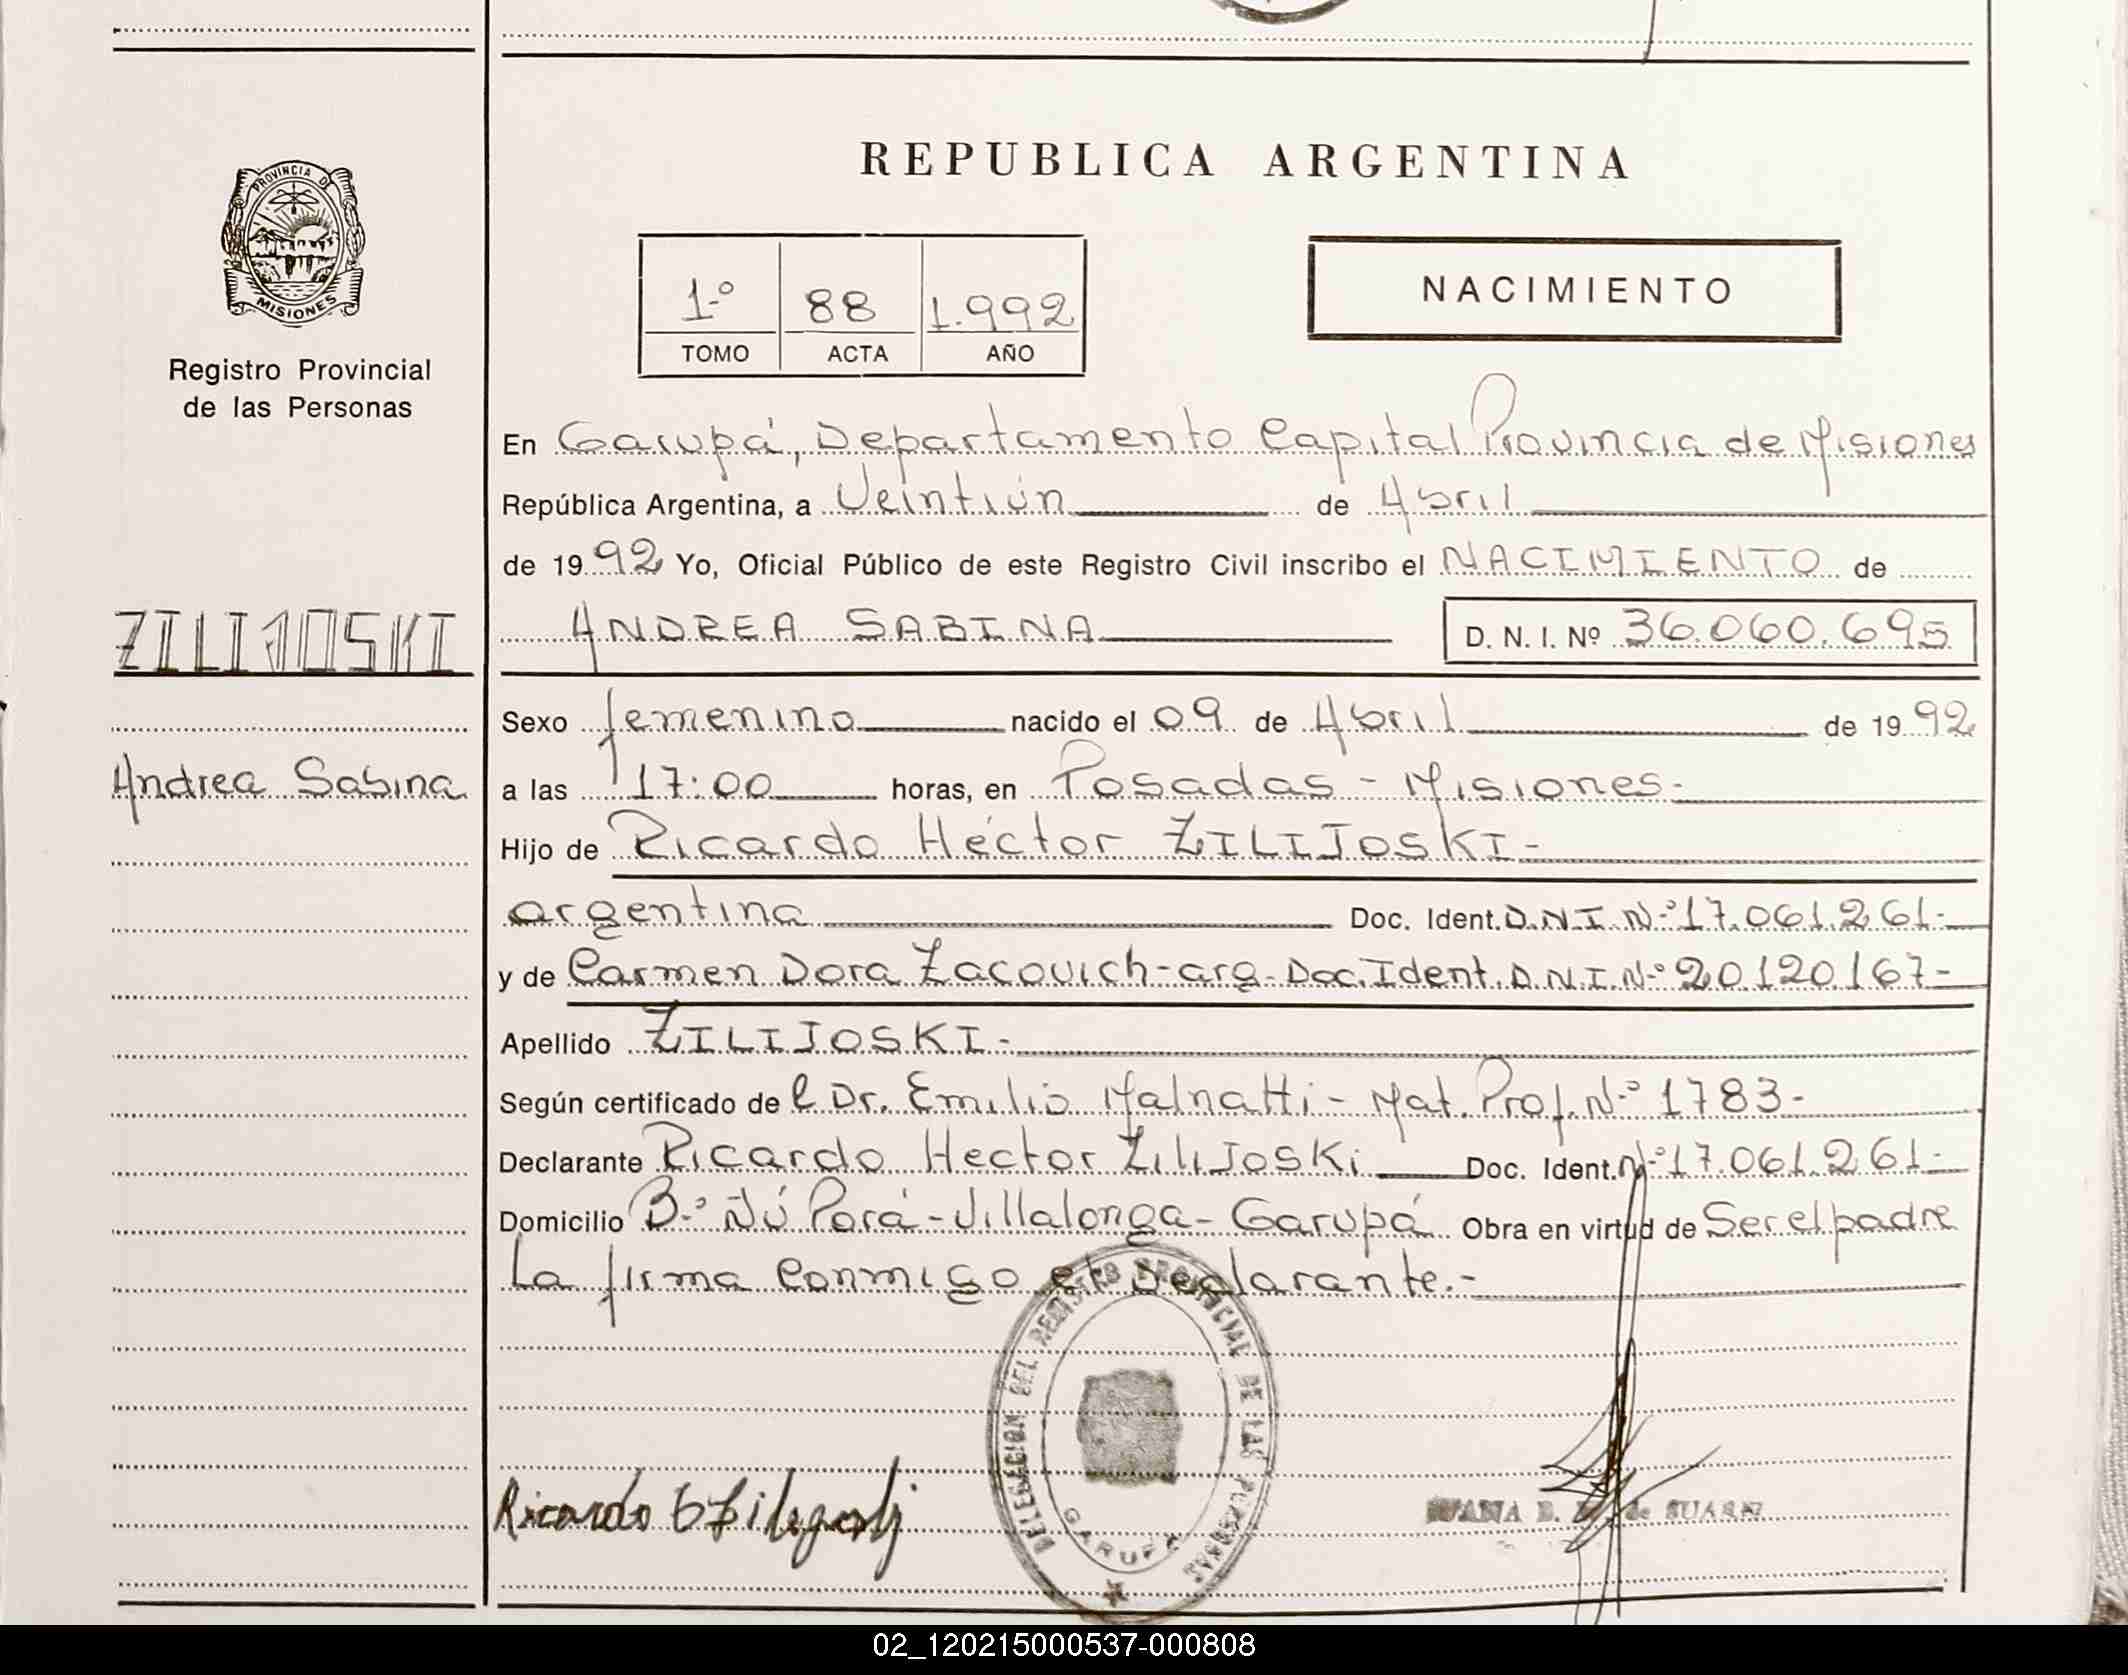 REPUBLICA ARGENTINA
PROVINCIA D
MISIONES
Registro Provincial
de las Personas
1º 88 1.992
TOMO ACTA AÑO
NACIMIENTO
En Garupá, Departamento Capital Provincia de Misiones
República Argentina, a Veintiún de Abril
de 1992 Yo, Oficial Público de este Registro Civil inscribo el NACIMIENTO de
ZILIJOSKI
ANDREA SABINA D. N. I. Nº 36.060.695
Sexo femenino nacido el 09 de Abril de 1992
Andrea Sabina
a las 17:00 horas, en Posadas - Misiones-
Hijo de Ricardo Héctor ZILIJOSKI-
argentina Doc. Ident. D.N.I. Nº 17.061.261-
y de Carmen Dora Zacovich-arg-Doc.Ident. D.N.I. Nº 20120167-
Apellido ZILIJOSKI-
Según certificado de l Dr. Emilio Malnatti - Mat. Prof. Nº 1783-
Declarante Ricardo Hector Zilijoski Doc. Ident. Nº 17.061.261-
Domicilio Bº Ñú Porá - Villalonga - Garupá Obra en virtud de Ser el padre
La firma conmigo el declarante.-
DELEGACION DEL REGISTRO PROVINCIAL DE LAS PERSONAS
GARUPA
Ricardo
B. de SUAREZ
02_120215000537-000808